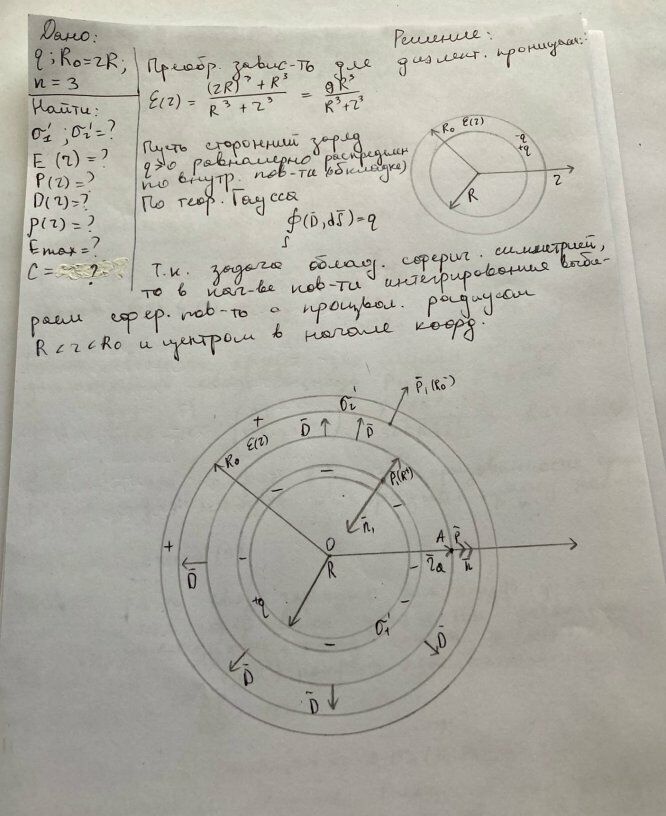 Дано:
q; R₀=2R;
n = 3
Найти:
σ₁'; σ₂'=?
E(r)=?
P(r)=?
D(r)=?
ρ(r)=?
Emax=?
C = ?
Решение:
Преобр. завис-ть для диэлект. проницаем.:
ε(r) = ((2R)³ + R³)/(R³ + r³) = 9R³/(R³+r³)
Пусть сторонний заряд
q>0 равномерно распределен
по внутр. пов-ти (обкладке)
По теор. Гаусса
∮(D̄,dS̄)=q
S
R₀ ε(r)
-q
+q
R
r
Т.к. задача облад. сферич. симметрией,
то в кач-ве пов-ти интегрирования выби-
раем сфер. пов-ть с произвол. радиусом
R<r<R₀ и центром в начале коорд.
P̄₁(R₀⁻)
σ₂'
+
R₀ ε(r)
D̄
D̄
P̄₁(R⁺)
n̄₁
O
R
A
P̄
r̄a
n̄
+
D̄
+q
σ₁'
D̄
D̄
D̄